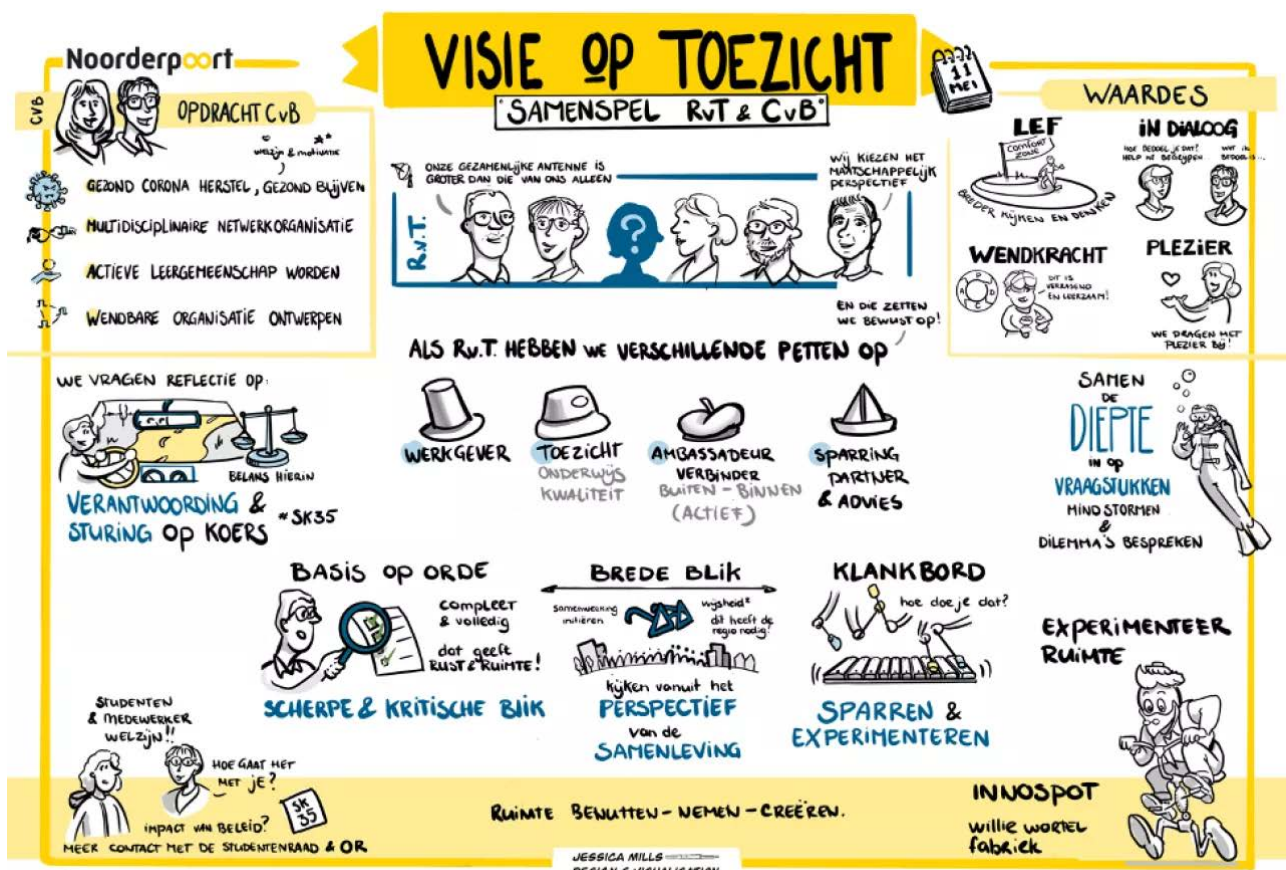 Noorderpoort
VISIE OP TOEZICHT
"SAMENSPEL RvT & CvB"
11
MEI
CvB
OPDRACHT CvB
welzijn & motivatie
GEZOND CORONA HERSTEL, GEZOND BLIJVEN
MULTIDISCIPLINAIRE NETWERKORGANISATIE
ACTIEVE LEERGEMEENSCHAP WORDEN
WENDBARE ORGANISATIE ONTWERPEN
ONZE GEZAMENLIJKE ANTENNE IS
GROTER DAN DIE VAN ONS ALLEEN
WIJ KIEZEN HET
MAATSCHAPPELIJK
PERSPECTIEF
R.v.T.
?
EN DIE ZETTEN
WE BEWUST OP!
WAARDES
LEF
COMFORT
ZONE
BREDER KIJKEN EN DENKEN
IN DIALOOG
HOE BEDOEL JE DAT?
HELP ME BEGRIJPEN
WAT IK
BEDOEL IS...
WENDKRACHT
P
D
C
A
DIT IS
VERRASEND
EN LEERZAAM!
PLEZIER
WE DRAGEN MET
PLEZIER BIJ!
ALS R.v.T. HEBBEN WE VERSCHILLENDE PETTEN OP
WERKGEVER
TOEZICHT
ONDERWIJS
KWALITEIT
AMBASSADEUR
VERBINDER
BUITEN - BINNEN
(ACTIEF)
SPARRING
PARTNER
& ADVIES
WE VRAGEN REFLECTIE OP:
BELANS HIERIN
VERANTWOORDING &
STURING OP KOERS
≈SK35
SAMEN
DE
DIEPTE
IN OP
VRAAGSTUKKEN
MIND STORMEN
&
DILEMMA'S BESPREKEN
BASIS OP ORDE
compleet
& volledig
dat geeft
RUST & RUIMTE!
SCHERPE & KRITISCHE BLIK
BREDE BLIK
samenwerking
initiëren
wijsheid²
dit heeft de
regio nodig!
kijken vanuit het
PERSPECTIEF
van de
SAMENLEVING
KLANKBORD
hoe doe je dat?
SPARREN &
EXPERIMENTEREN
EXPERIMENTEER
RUIMTE
STUDENTEN
& MEDEWERKER
WELZIJN!!
HOE GAAT HET
MET JE?
IMPACT VAN BELEID?
SK
35
MEER CONTACT MET DE STUDENTENRAAD & OR
RUIMTE BENUTTEN - NEMEN - CREËREN.
INNOSPOT
willie wortel
fabriek
JESSICA MILLS
DESIGN & VISUALISATION